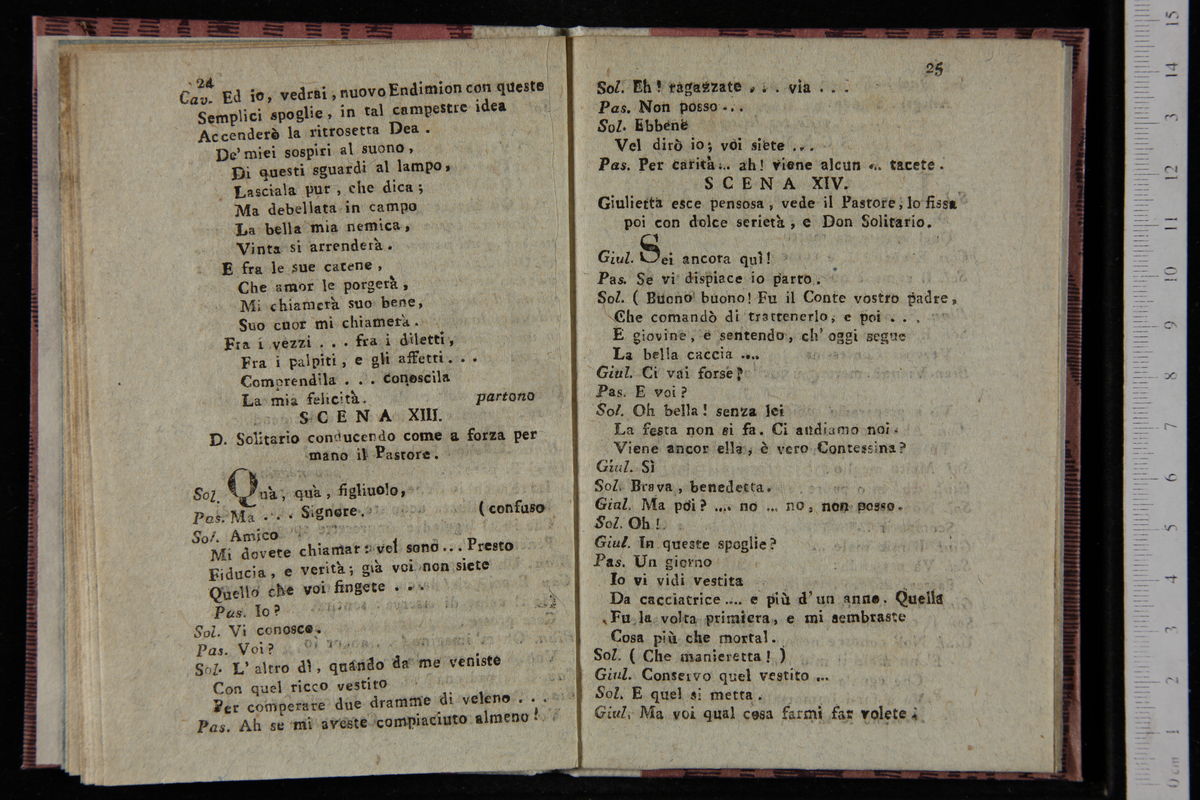 24
Cav. Ed io, vedrai, nuovo Endimion con queste
Semplici spoglie, in tal campestre idea
Accenderò la ritrosetta Dea.
De' miei sospiri al suono,
Di questi sguardi al lampo,
Lasciala pur, che dica;
Ma debellata in campo
La bella mia nemica,
Vinta si arrenderà.
E fra le sue catene,
Che amor le porgerà,
Mi chiamerà suo bene,
Suo cuor mi chiamerà.
Fra i vezzi . . . fra i diletti,
Fra i palpiti, e gli affetti . . .
Comprendila . . . conoscila
La mia felicità. partono
SCENA XIII.
D. Solitario conducendo come a forza per
mano il Pastore.
Sol. Quà, quà, figliuolo,
Pas. Ma . . . Signore. (confuso
Sol. Amico
Mi dovete chiamar: vel sono... Presto
Fiducia, e verità; già voi non siete
Quello che voi fingete . . .
Pas. Io?
Sol. Vi conosco.
Pas. Voi?
Sol. L' altro dì, quando da me veniste
Con quel ricco vestito
Per comperare due dramme di veleno . . .
Pas. Ah se mi aveste compiaciuto almeno!
25
Sol. Eh! ragazzate . . . via . . .
Pas. Non posso...
Sol. Ebbene
Vel dirò io; voi siete ...
Pas. Per carità... ah! viene alcun ... tacete.
SCENA XIV.
Giulietta esce pensosa, vede il Pastore, lo fissa
poi con dolce serietà, e Don Solitario.
Giul. Sei ancora quì!
Pas. Se vi dispiace io parto.
Sol. ( Buono buono! Fu il Conte vostro padre,
Che comandò di trattenerlo, e poi . . .
E giovine, e sentendo, ch' oggi segue
La bella caccia ....
Giul. Ci vai forse?
Pas. E voi?
Sol. Oh bella! senza lei
La festa non si fa. Ci andiamo noi.
Viene ancor ella, è vero Contessina?
Giul. Sì
Sol. Brava, benedetta.
Gial. Ma poi? .... no ... no, non posso.
Sol. Oh!
Giul. In queste spoglie?
Pas. Un giorno
Io vi vidi vestita
Da cacciatrice .... e più d' un anno. Quella
Fu la volta primiera, e mi sembraste
Cosa più che mortal.
Sol. ( Che manieretta! )
Giul. Conservo quel vestito ...
Sol. E quel si metta.
Giul. Ma voi qual cosa farmi far volete.
15
14
13
12
11
10
9
8
7
6
5
4
3
2
1
0 cm